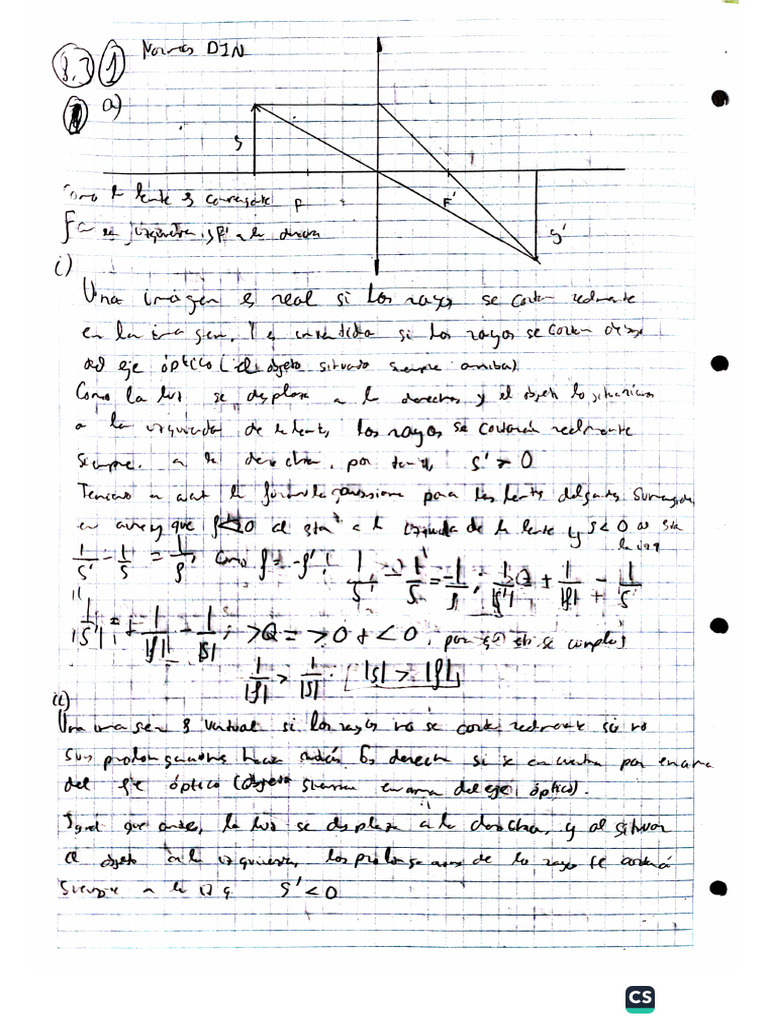 8.3 1 Normas DIN
a)
s
Como la lente es convergente F F'
F a la izquierda, y F' a la derecha s'
i)
Una imagen es real si los rayos se cortan realmente
en la imagen. Y es invertida si los rayos se cortan debajo
del eje óptico (el objeto situado siempre arriba).
Como la luz se desplaza a la derecha y el objeto lo situamos
a la izquierda de la lente, los rayos se cortarán realmente
siempre a la derecha, por tanto, s' > 0
Teniendo en cuenta la fórmula gaussiana para las lentes delgadas
en que f<0 al estar a la izquierda de la lente y s<0 se está
la izq
1/s' - 1/s = 1/f' como f = -f' ; 1/s' - 1/s = -1/f ;
1/|s'| = 1/|f| - 1/|s| ; >0 = >0 + <0, por
1/|f| > 1/|s| . |s| > |f|
ii)
Una imagen es virtual si los rayos no se cortan realmente si no
sus prolongaciones hacia atrás. Es derecha si se encuentra por encima
del eje óptico (objeto siempre encima del eje óptico).
Igual que antes, la luz se desplaza a la derecha, y al situar
el objeto a la izquierda, las prolongaciones de los rayos se cortará
siempre a la izq. s' < 0
CS